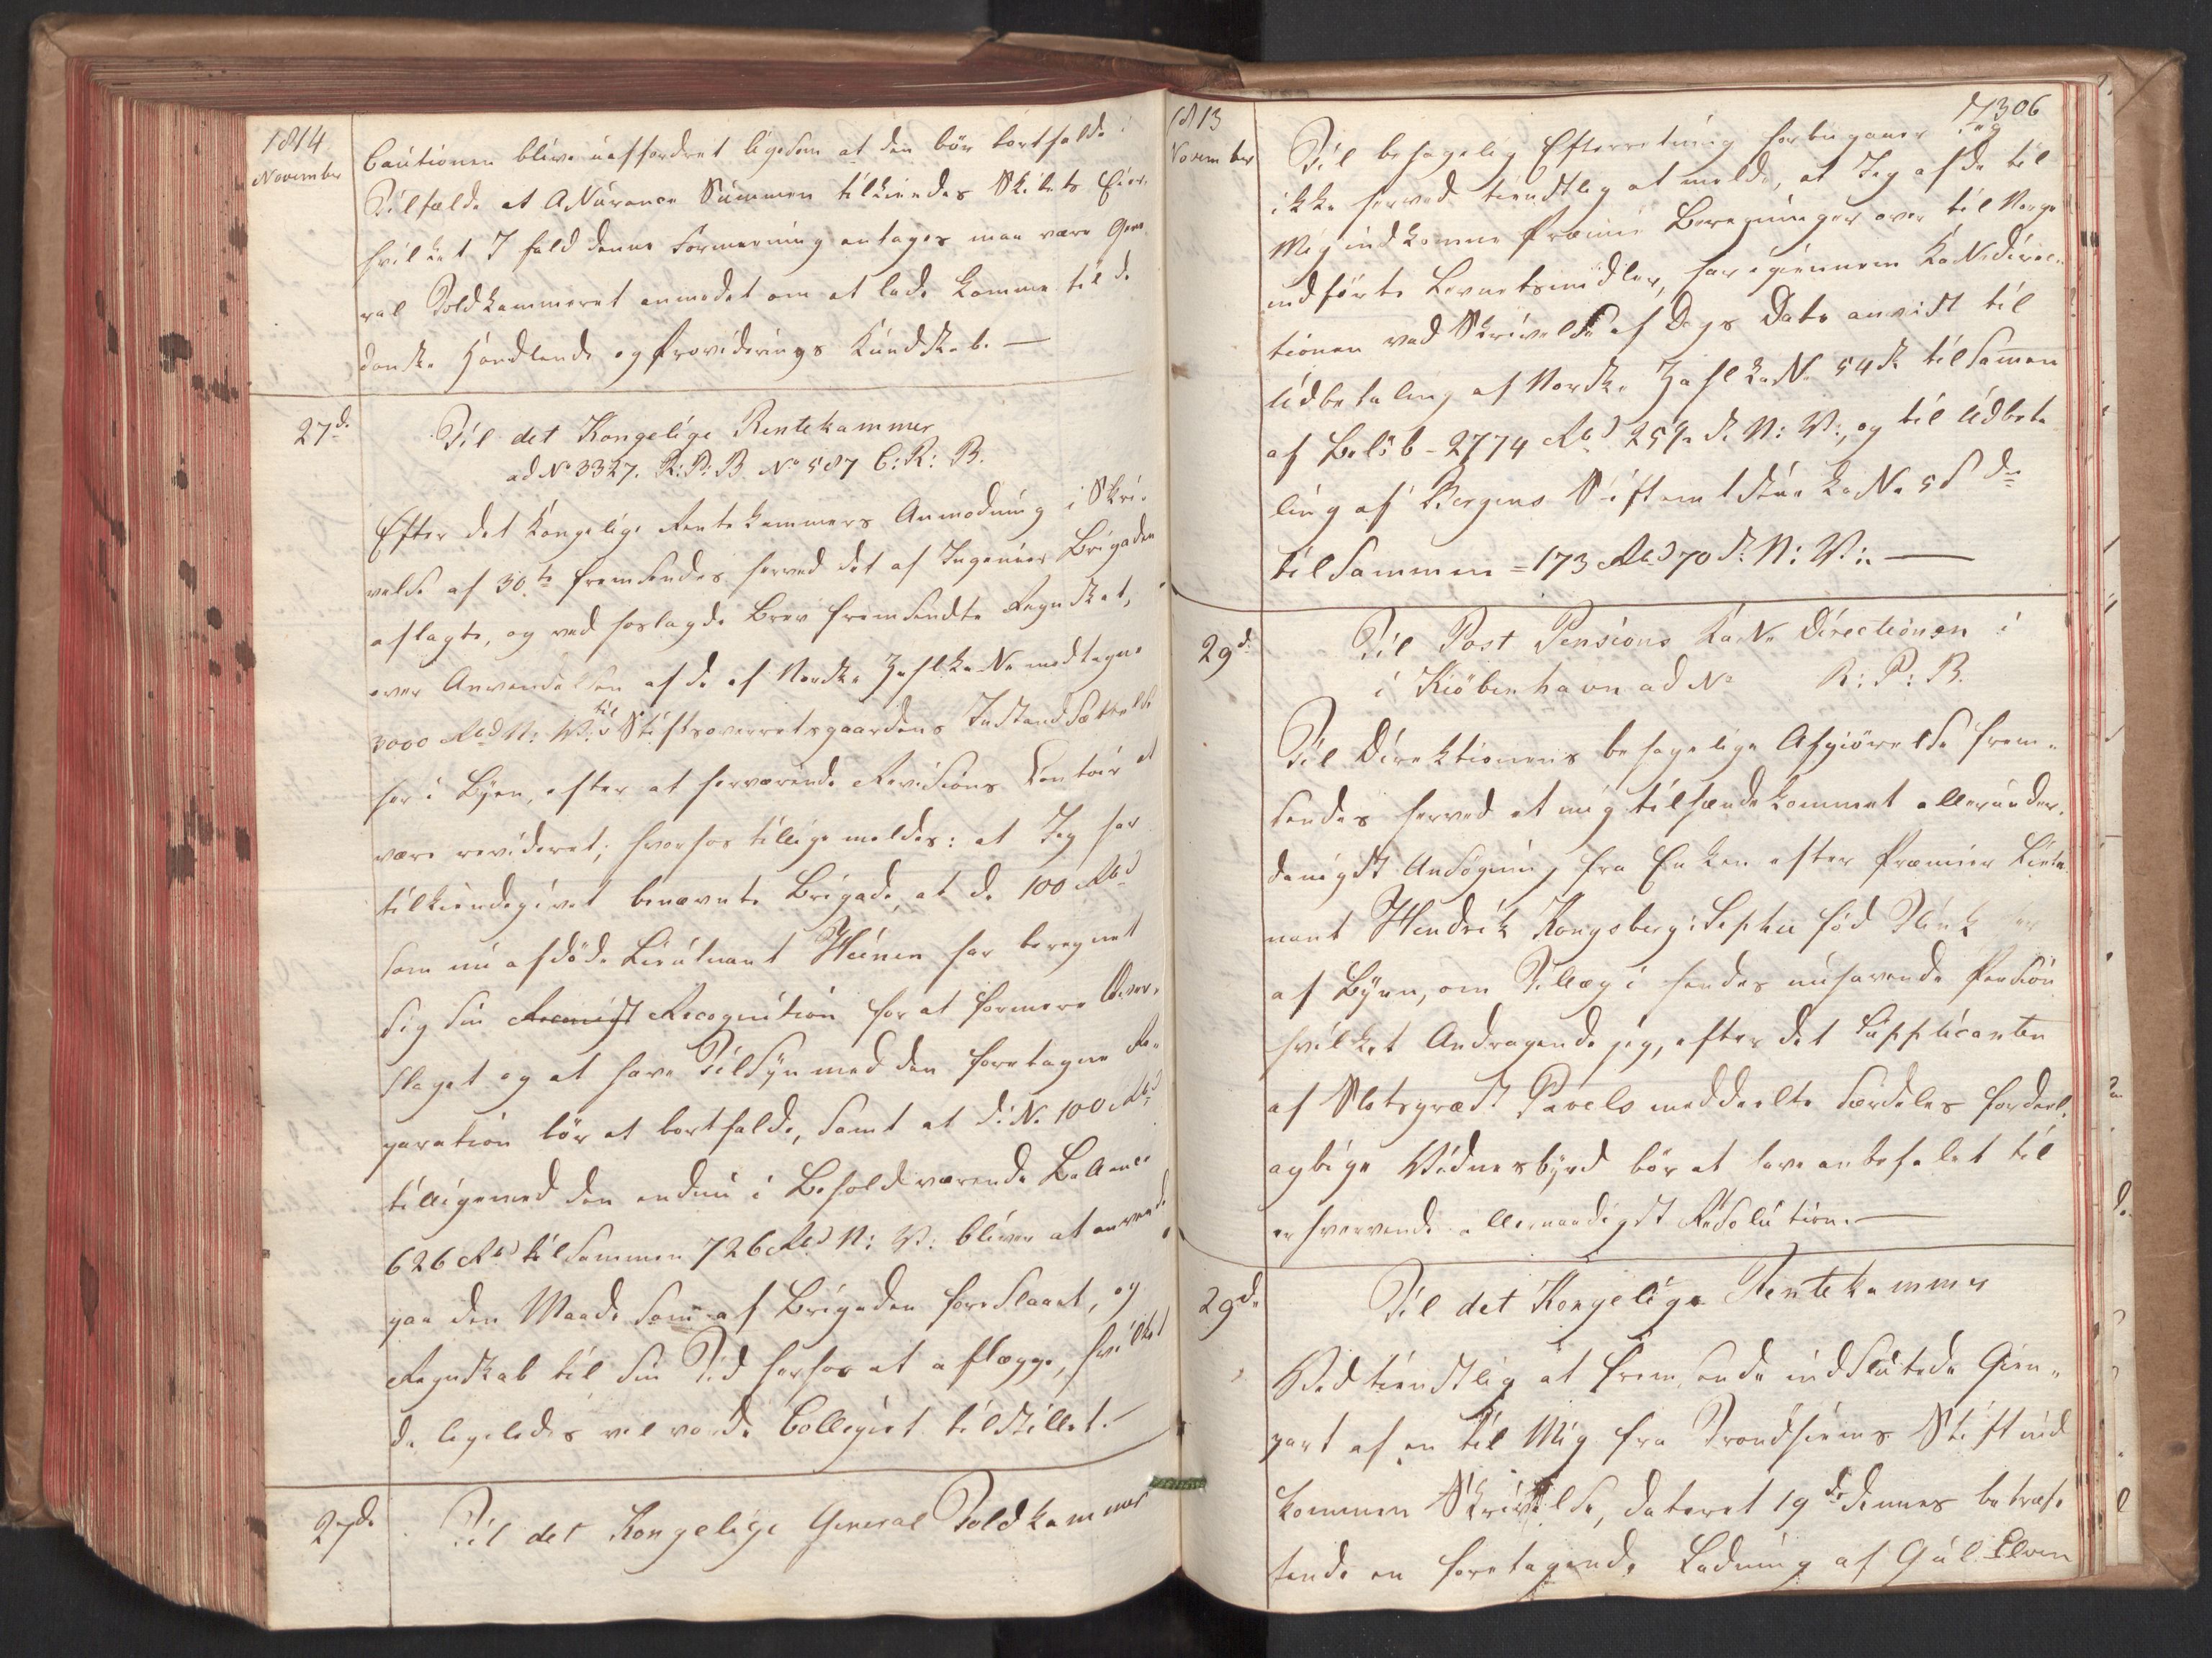 1814
November
Cautionen blive uaffordret ligesom at den bör bortfalde i
Tilfælde at Assurance Summen tilkiendes Skibets Eier
hvilket I fald denne Formening antages maa være Gene
ral Toldkammeret anmodet om at lade komme til de
danske Handlende og Provideringss Kundskab. —
27d.
Til det Kongelige Rentekammer
ad No 3327. R: P: B. No 587 C: R: B.
Efter det Kongelige Rentekammers Anmodning i Skri-
velse af 30.te fremsendes herved det af Ingenieur Brigaden
aflagte, og ved hoslagde Brev fremsendte Regnskab,
over Anvendelsen af de af Norske Zahlkasse modtagne
3000 Rbd N: V: til Stiftsoverretsgaardens Istandsættelse
her i Byen, efter at herværende Revisions Contoir at
være revideret; hvorhos tillige meldes: at Jeg har
tilkiendegivet benævnte Brigade, at de 100 Rbd
som nu afdöde Lieutnant Heinen har beregnet
sig sin Recognition for at formere Over-
slaget og at have Tilsyn med den foretagne Re-
paration bör at bortfalde, samt at diss. 100 Rbd
tilligemed den endnu i Behold værende Ballance
626 Rbd tilsammen 726 Rbd N: V: bliver at anvende
paa den Maade som af Brigaden foreslaaet, og
Regnskab til sin Tid herfor at aflægge, hvilket
da ligeledes vil vorde Collegiet tilstillet. —
27de
Til det Kongelige General Toldkammer
1813
November
306
Til behagelig Efterretning undlader Jeg
ikke herved tienstlig at melde, at Jeg af de til
Mig indkomne Præmie Beregninger over til Norge
indförte Levnetsmidler, har igiennem Kassedirec-
tionen ved Skrivelse af Dags Dato anvist til
Udbetaling af Norske Zahlkasse 54 St. tilsamen
af Belöb - 2774 Rbd 25½ s. N: V:, og til Udbeta
ling af Bergens Stiftamtstue Kasse 5 S do
tilsammen = 173 Rbd 70 s. N: V:. —
29d.
Til Post Pensions Kasse Directionen i
i Kiöbenhavn ad No R: P: B.
Til Direktionens behagelige Afgiörelse frem-
sendes herved et mig tilhændekommet allerunder-
danigst Ansögning fra Enken efter Præmier Lieute
nant Hendrik Kongsberg: Sophie föd Flink her
af Byen, om Tillæg i hendes nuhavende Pension
hvilket Andragende jeg, efter det Supplicanten
af Slotspræst Pavels meddeelte særdeles fordeel-
agtige Vidnesbyrd bör at have anbefalet til
erhvervende allernaadigst Resolution. —
29de
Til det Kongelige Rentekammer
Ved tienstlig at fremsende indsluttede Gien-
part af en til Mig fra Trondhiems Stift ind
kommen Skrivelse, dateret 19de dennes betræf-
fende en foretagende Ladning af Gul Elven